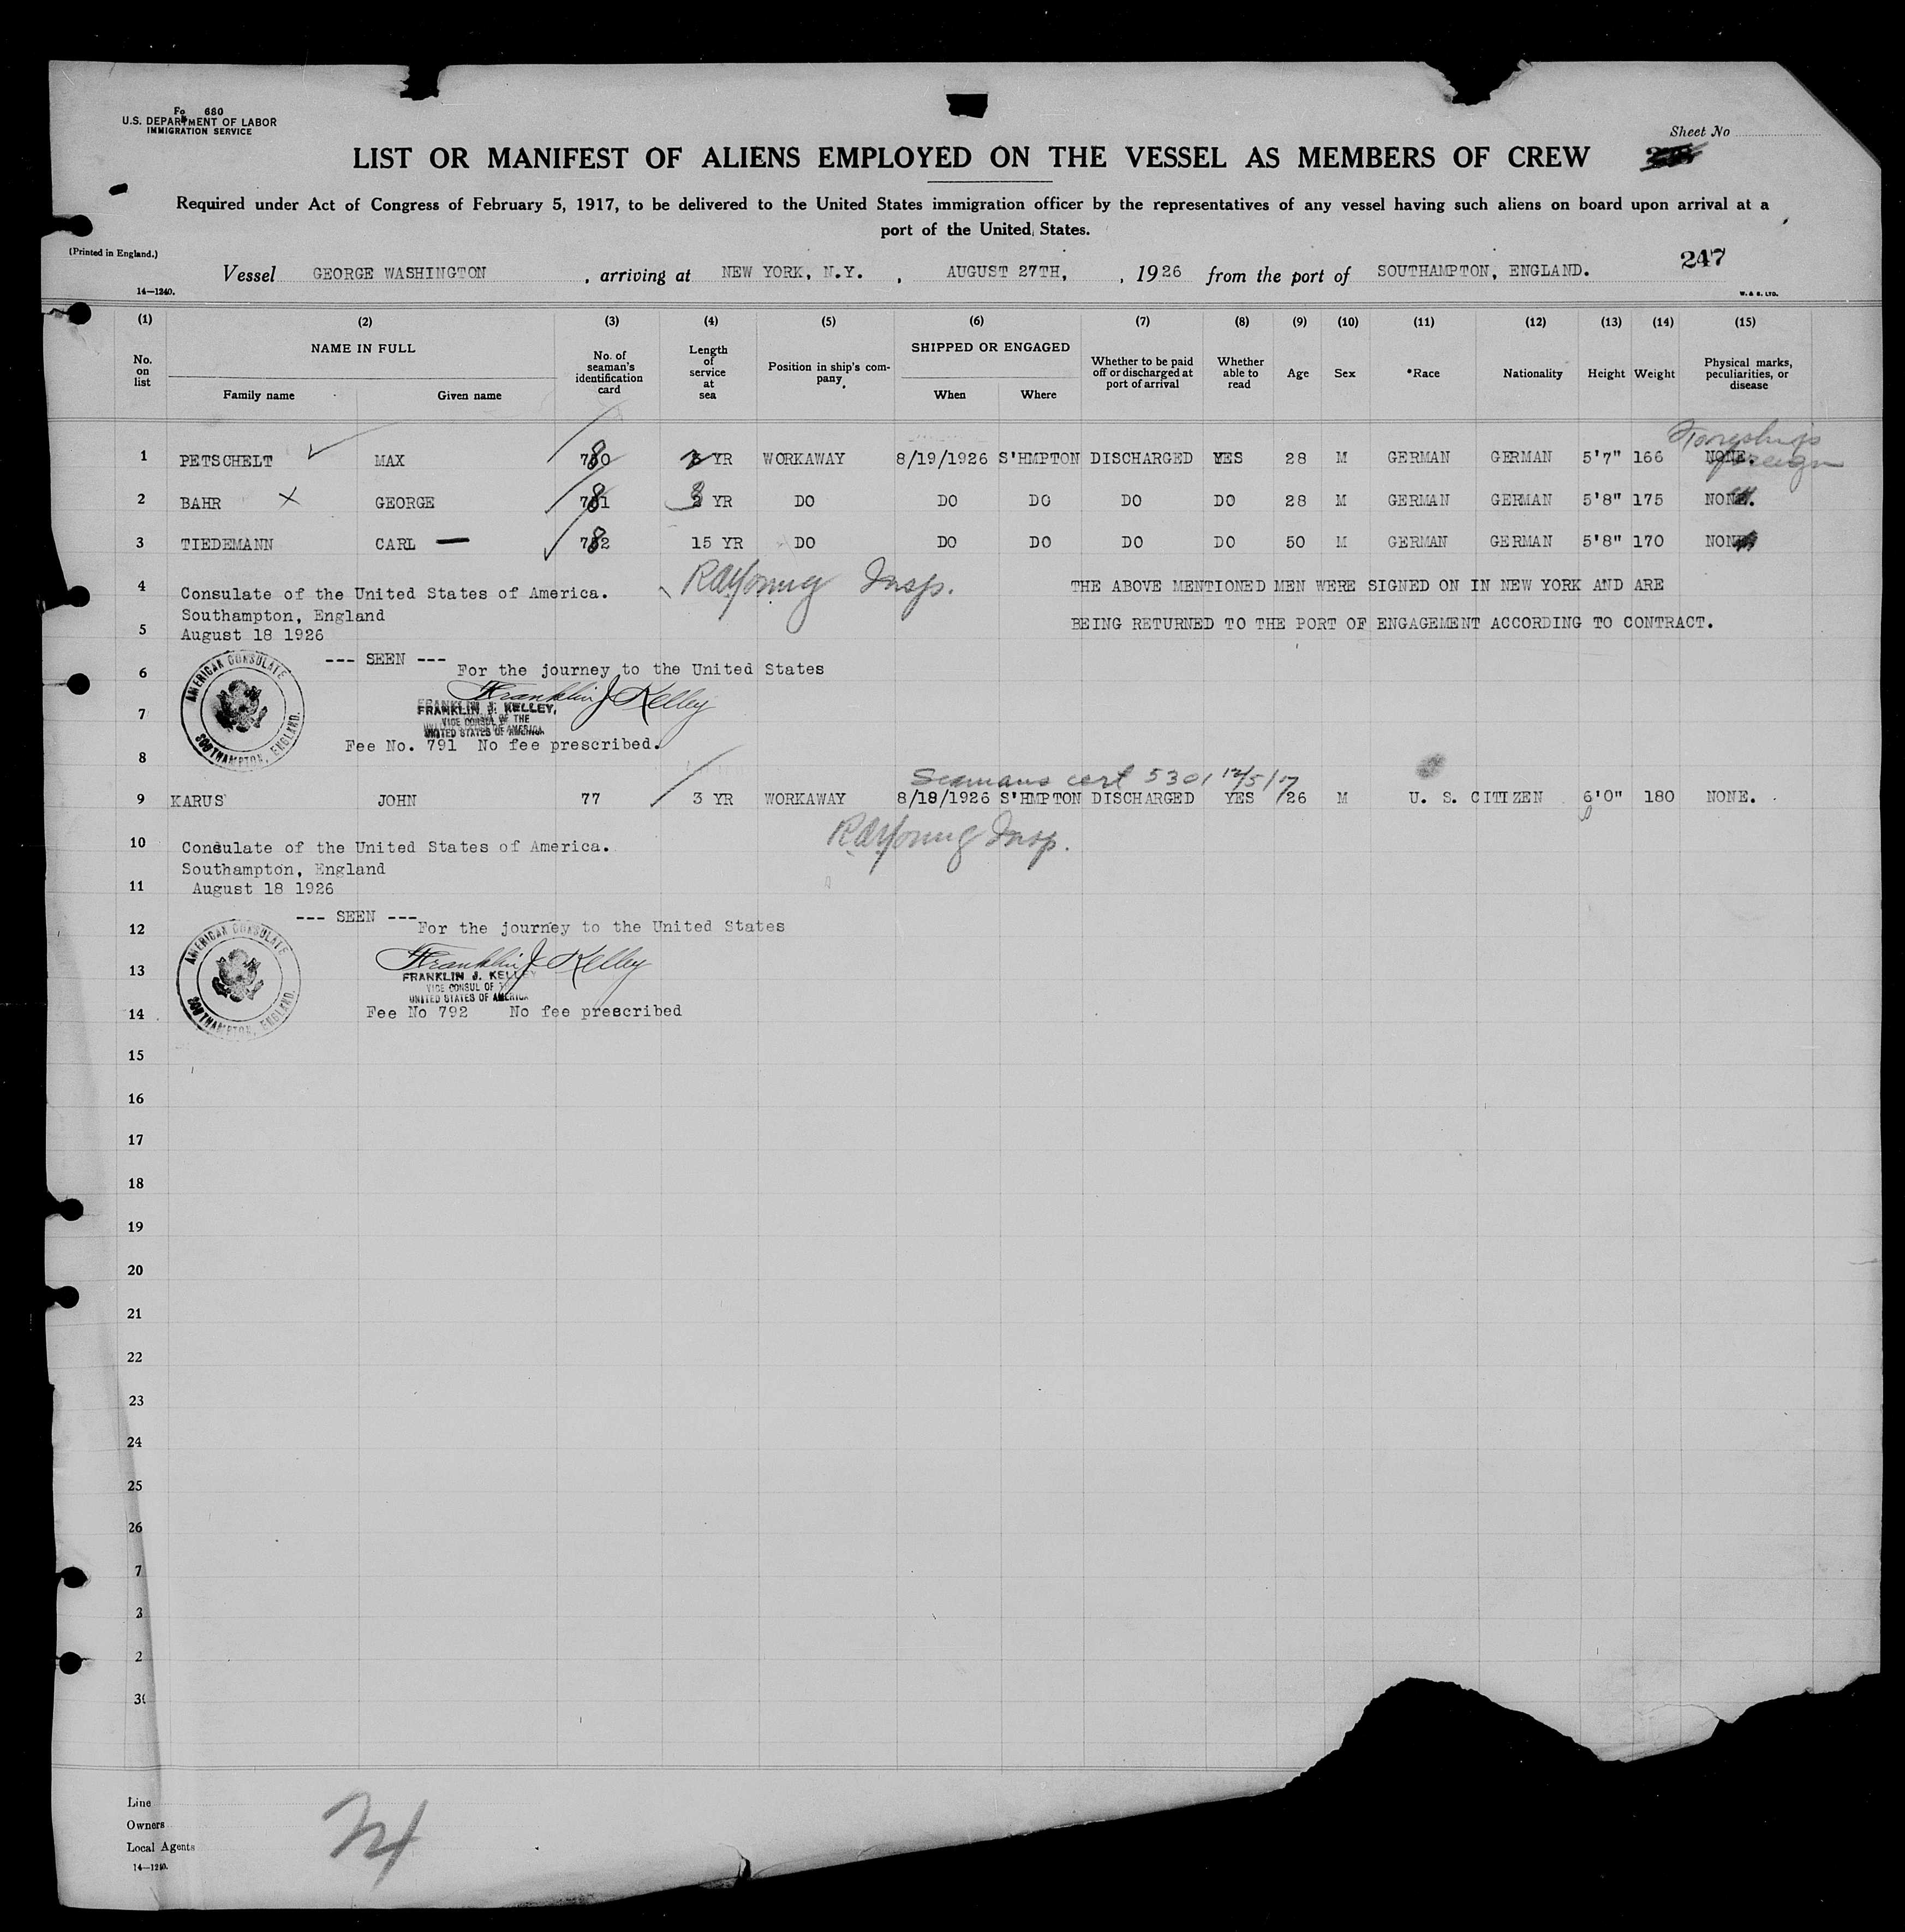 Fo 680
U.S. DEPARTMENT OF LABOR
IMMIGRATION SERVICE
Sheet No
LIST OR MANIFEST OF ALIENS EMPLOYED ON THE VESSEL AS MEMBERS OF CREW
Required under Act of Congress of February 5, 1917, to be delivered to the United States immigration officer by the representatives of any vessel having such aliens on board upon arrival at a
port of the United States.
(Printed in England.)
247
Vessel GEORGE WASHINGTON , arriving at NEW YORK, N.Y. , AUGUST 27TH, , 1926 from the port of SOUTHAMPTON, ENGLAND.
14—1240. W. & S. LTD.
(1) (2) (3) (4) (5) (6) (7) (8) (9) (10) (11) (12) (13) (14) (15)
No. on list NAME IN FULL Family name Given name No. of seaman's identification card Length of service at sea Position in ship's company SHIPPED OR ENGAGED When Where Whether to be paid off or discharged at port of arrival Whether able to read Age Sex *Race Nationality Height Weight Physical marks, peculiarities, or disease
foreign
1 PETSCHELT MAX 780 YR WORKAWAY 8/19/1926 S'HMPTON DISCHARGED YES 28 M GERMAN GERMAN 5'7" 166 NONE.
2 BAHR X GEORGE 781 3 YR DO DO DO DO DO 28 M GERMAN GERMAN 5'8" 175 NONE.
3 TIEDEMANN CARL — 782 15 YR DO DO DO DO DO 50 M GERMAN GERMAN 5'8" 170 NONE
4 Consulate of the United States of America. RAYoung Insp. THE ABOVE MENTIONED MEN WERE SIGNED ON IN NEW YORK AND ARE
Southampton, England
5 August 18 1926 BEING RETURNED TO THE PORT OF ENGAGEMENT ACCORDING TO CONTRACT.
--- SEEN ---
6 For the journey to the United States
AMERICAN CONSULATE SOUTHAMPTON, ENGLAND.
Franklin J Kelley
7 FRANKLIN J. KELLEY,
VICE CONSUL OF THE
UNITED STATES OF AMERICA
Fee No. 791 No fee prescribed.
8
Seamans cert 5301 12/5/17
9 KARUS JOHN 77 3 YR WORKAWAY 8/18/1926 S'HMPTON DISCHARGED YES 26 M U. S. CITIZEN 6'0" 180 NONE.
RAYoung Insp.
10 Consulate of the United States of America.
Southampton, England
11 August 18 1926
--- SEEN ---
12 For the journey to the United States
AMERICAN CONSULATE SOUTHAMPTON, ENGLAND.
Franklin J Kelley
13 FRANKLIN J. KELLEY
VICE CONSUL OF T
UNITED STATES OF AMERICA
14 Fee No 792 No fee prescribed
15
16
17
18
19
20
21
22
23
24
25
26
7
3
2
30
Line
Owners
Local Agents
14—1240.